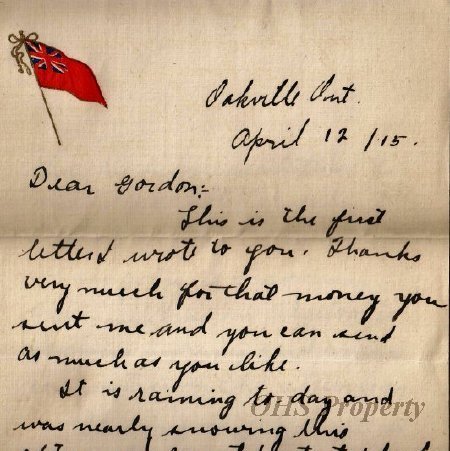 Oakville Ont.
April 12 /15.
Dear Gordon:-
This is the first
letter I wrote to you. Thanks
very much for that money you
sent me and you can send
as much as you like.
It is raining to day and
OHS Property
was nearly snowing this